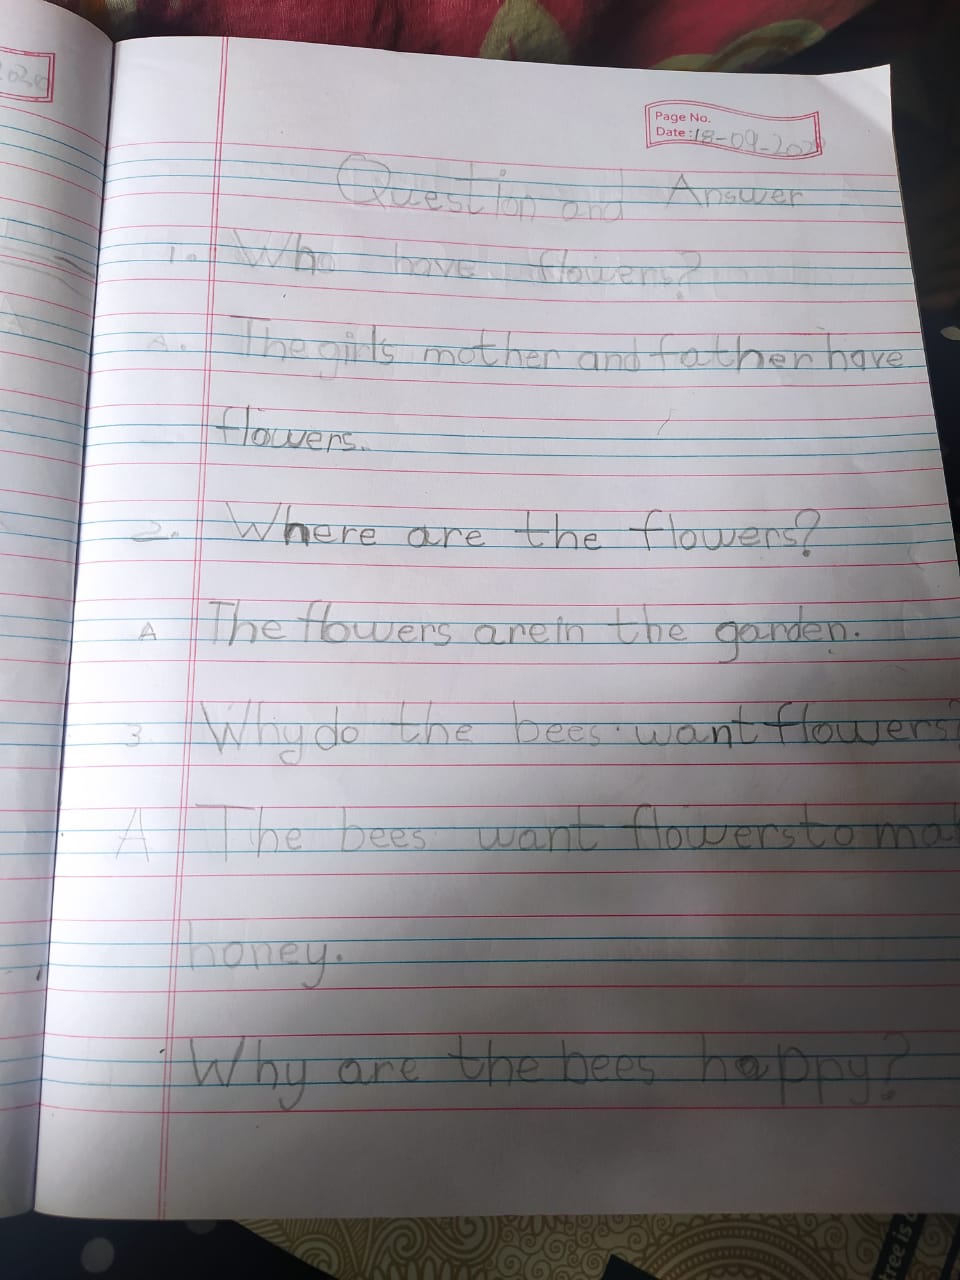 Page No.
Date: 18-09-202
Question and Answer
1. Who have flowers?
A. The girls mother and father have
flowers.
2. Where are the flowers?
A The flowers are in the garden.
3. Why do the bees want flowers?
A The bees want flowers to ma
honey.
Why are the bees happy?
ree is